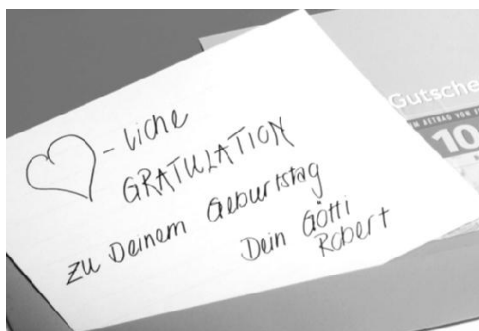 - liche
GRATULATION
zu Deinem Geburtstag
Dein Götti
Robert
Gutsche
10